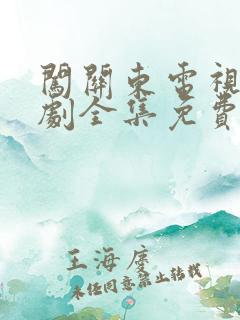 闖關東電視
劇全集免費
王海度
未经同意禁止转载